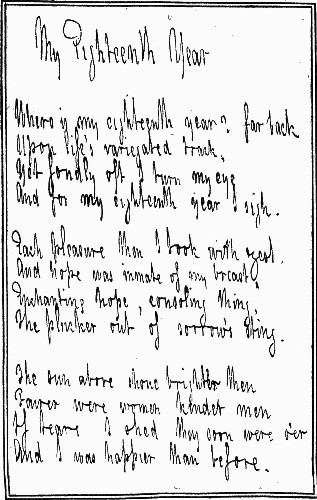 My Eighteenth Year
Where is my eighteenth year? far back
Upon life's variegated track,
Yet fondly oft I turn my eye
And for my eighteenth year I sigh.
Each pleasure then I took with zest.
And hope was inmate of my breast,
Enchanting hope, consoling thing,
The plucker out of sorrow's sting.
The sun above shone brighter then
Fairer were women kinder men
If tears I shed they soon were o'er
And I was happier than before.